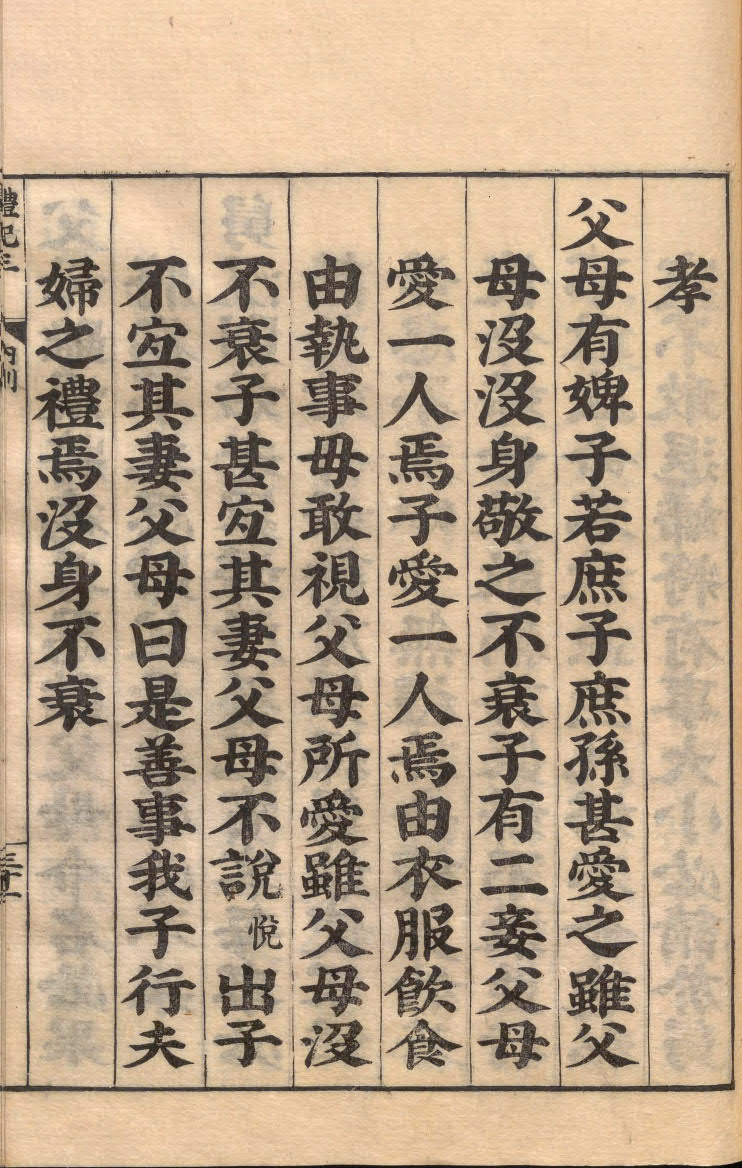 孝
父母有婢子若庶子庶孫甚愛之雖父
母沒沒身敬之不衰子有二妾父母
愛一人焉子愛一人焉由衣服飲食
由執事毋敢視父母所愛雖父母沒
不衰子甚宐其妻父母不說悅出子
不宐其妻父母曰是善事我子行夫
婦之禮焉沒身不衰
禮記三
內則